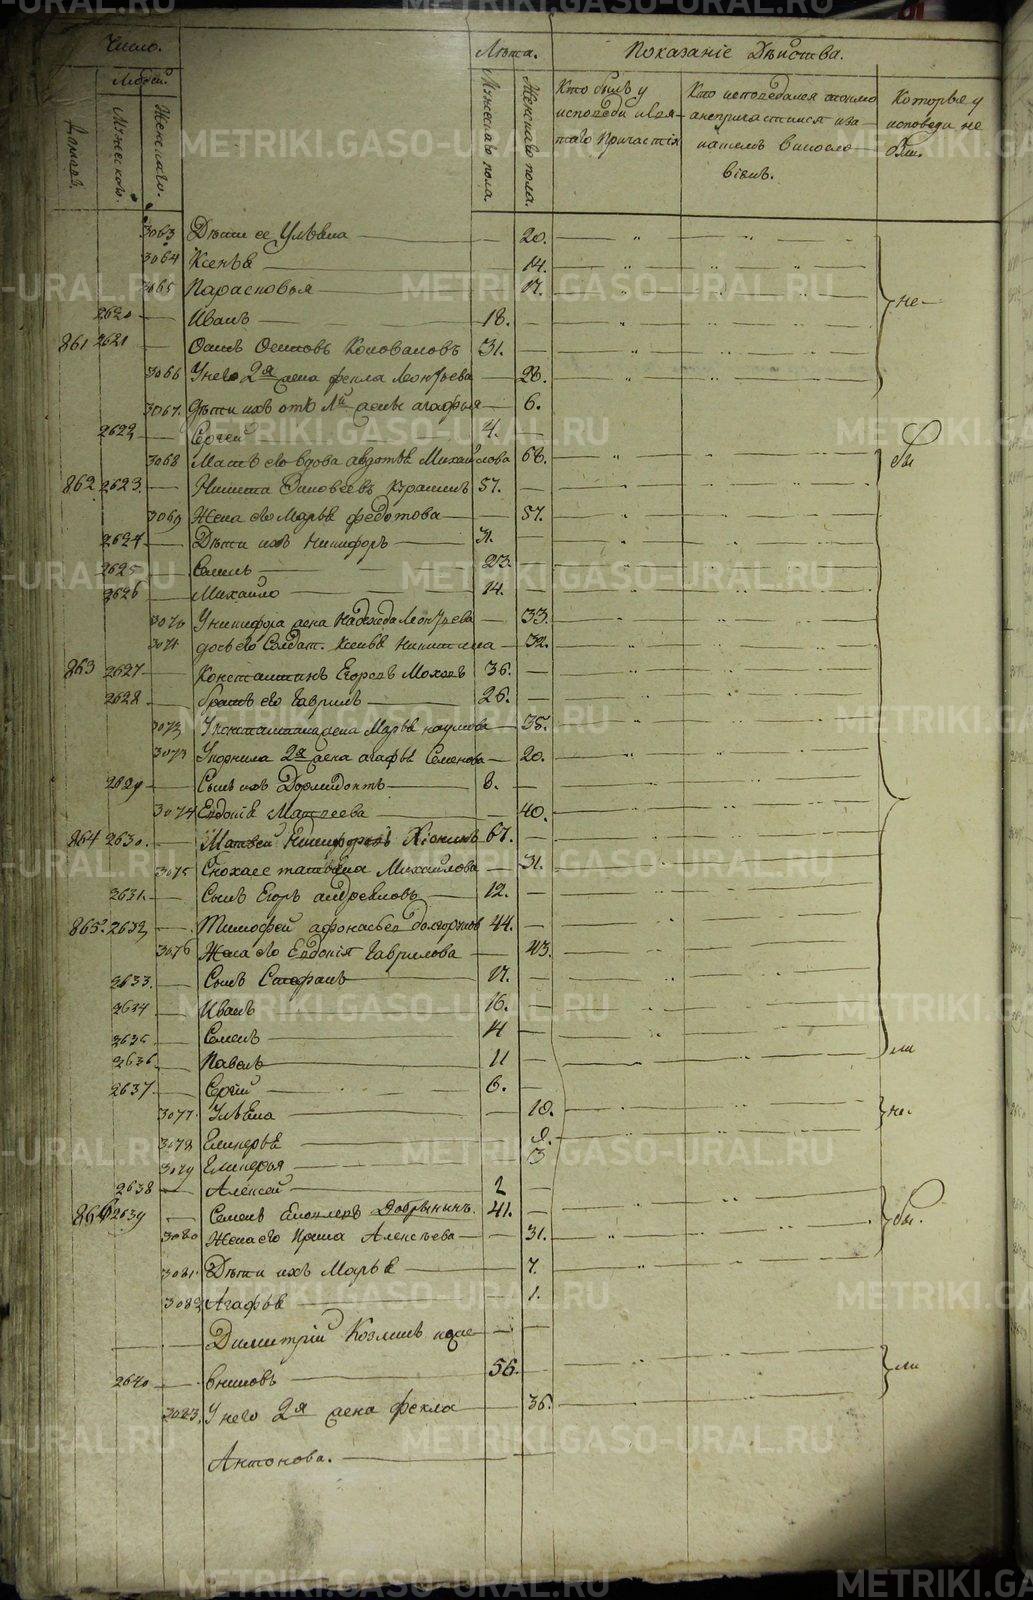 Число.
Людей.
Домовъ.
Мужескаго.
Женскаго.
Лѣта.
Мужескаго пола
Женскаго пола.
Показаніе Дѣйства.
Кто былъ у исповѣди и святаго Причастія
Кто исповѣдался токмо а непричастился и за
Которые у исповѣди не были.
3063 Дѣти ее Ульяна — 20.
3064 Ксенья 14.
3065 Парасковья 17.
2620 — Иванъ 18. — не
861 2621 — Осипъ Осиповъ 31. —
3066 У него 2я жена Фекла Леонтьева — 28.
3067. Дѣти ихъ отъ 1й жены Агафья — 6.
2622 — Сергей 4. —
3068 Мать его вдова Авдотья Михайлова 68. бы
862 2623. — Никита 57. —
3069 Жена его Марья Федотова — 57.
2624 — Дѣти ихъ Никифоръ 31. —
2625 — Семенъ 23. —
2626 — Михайло 14. —
3070 У Никифора жена Надежда Леонтьева — 33.
3071 дочь его Солдат. Ксенья Никитина — 32.
863 2627 — Константинъ Егоровъ 36. —
2628 — братъ его Гаврилъ 26. —
3072 У Константина жена Марья Наумова — 35.
3073 2я жена Агафья Семенова — 20.
2629 — Сынъ ихъ Дормидонтъ 8. —
3074 Евдокія Матвеева — 40.
864 2630. — Матвей Никифоровъ 67. —
3075 Сноха его Татьяна Михайлова — 31.
2631. — Сынъ Егоръ 12. —
865. 2632 — Тимофей Афонасьевъ 44. —
3076 Жена его Евдокія Гаврилова — 43.
2633. — Сынъ Стефанъ 17. —
2634 — Иванъ 16. —
2635 — Семенъ 14 —
2636 — Павелъ 11 — ли
2637 — Сергій 6. —
3077. Ульяна — 10. не.
3078 — 8.
3079 — 3
2638 — Алексей 2 —
866 2639 — Семенъ Добрынинъ. 41. — бы.
3080 Жена его Ирина Алексѣева — 31.
3081. Дѣти ихъ Марья — 7.
3082 Агафья — 1.
Димитрій Козминъ
2640 — 56. — ли
3083. У него 2я жена Фекла — 36.
Антонова.
METRIKI.GASO-URAL.RU